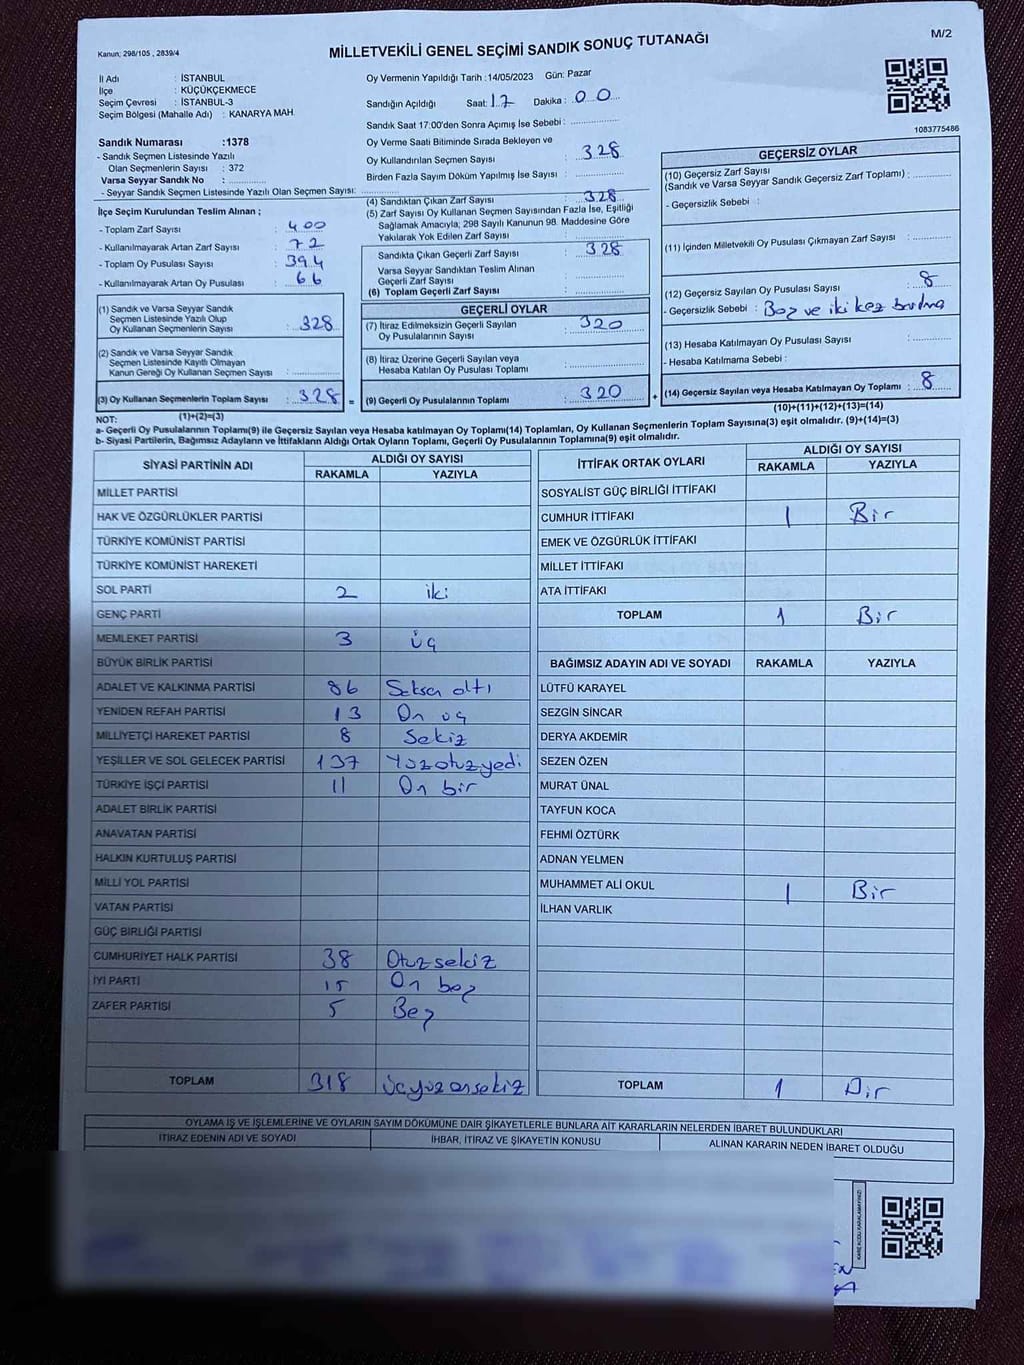 M/2
Kanun; 298/105 , 2839/4
MİLLETVEKİLİ GENEL SEÇİMİ SANDIK SONUÇ TUTANAĞI
İl Adı : İSTANBUL
İlçe : KÜÇÜKÇEKMECE
Seçim Çevresi : İSTANBUL-3
Seçim Bölgesi (Mahalle Adı) : KANARYA MAH.
Sandık Numarası :1378
- Sandık Seçmen Listesinde Yazılı
Olan Seçmenlerin Sayısı : 372
Varsa Seyyar Sandık No :
- Seyyar Sandık Seçmen Listesinde Yazılı Olan Seçmen Sayısı:
Oy Vermenin Yapıldığı Tarih :14/05/2023 Gün: Pazar
Sandığın Açıldığı Saat: 17 Dakika : 00
Sandık Saat 17:00'den Sonra Açımış İse Sebebi:
Oy Verme Saati Bitiminde Sırada Bekleyen ve
Oy Kullandırılan Seçmen Sayısı : 328
Birden Fazla Sayım Döküm Yapılmış İse Sayısı :
1083775486
İlçe Seçim Kurulundan Teslim Alınan ;
- Toplam Zarf Sayısı : 400
- Kullanılmayarak Artan Zarf Sayısı : 72
- Toplam Oy Pusulası Sayısı : 394
- Kullanılmayarak Artan Oy Pusulası : 66
(1) Sandık ve Varsa Seyyar Sandık
Seçmen Listesinde Yazılı Olup
Oy Kullanan Seçmenlerin Sayısı : 328
(2) Sandık ve Varsa Seyyar Sandık
Seçmen Listesinde Kayıtlı Olmayan
Kanun Gereği Oy Kullanan Seçmen Sayısı :
(3) Oy Kullanan Seçmenlerin Toplam Sayısı : 328 =
(1)+(2)=(3)
(4) Sandıktan Çıkan Zarf Sayısı : 328
(5) Zarf Sayısı Oy Kullanan Seçmen Sayısından Fazla İse, Eşitliği
Sağlamak Amacıyla; 298 Sayılı Kanunun 98. Maddesine Göre
Yakılarak Yok Edilen Zarf Sayısı :
Sandıkta Çıkan Geçerli Zarf Sayısı : 328
Varsa Seyyar Sandıktan Teslim Alınan
Geçerli Zarf Sayısı :
(6) Toplam Geçerli Zarf Sayısı :
GEÇERLİ OYLAR
(7) İtiraz Edilmeksizin Geçerli Sayılan
Oy Pusulalarının Sayısı : 320
(8) İtiraz Üzerine Geçerli Sayılan veya
Hesaba Katılan Oy Pusulası Toplamı :
(9) Geçerli Oy Pusulalarının Toplamı : 320 +
GEÇERSİZ OYLAR
(10) Geçersiz Zarf Sayısı
(Sandık ve Varsa Seyyar Sandık Geçersiz Zarf Toplamı) :
- Geçersizlik Sebebi :
(11) İçinden Milletvekili Oy Pusulası Çıkmayan Zarf Sayısı :
(12) Geçersiz Sayılan Oy Pusulası Sayısı : 8
- Geçersizlik Sebebi : Boş ve iki kez basılma
(13) Hesaba Katılmayan Oy Pusulası Sayısı :
- Hesaba Katılmama Sebebi :
(14) Geçersiz Sayılan veya Hesaba Katılmayan Oy Toplamı : 8
(10)+(11)+(12)+(13)=(14)
NOT:
a- Geçerli Oy Pusulasının Toplamı(9) ile Geçersiz Sayılan veya Hesaba katılmayan Oy Toplamı(14) Toplamları, Oy Kullanan Seçmenlerin Toplam Sayısına(3) eşit olmalıdır. (9)+(14)=(3)
b- Siyasi Partilerin, Bağımsız Adayların ve İttifakların Aldığı Ortak Oyların Toplamı, Geçerli Oy Pusulalarının Toplamına(9) eşit olmalıdır.
SİYASİ PARTİNİN ADI ALDIĞI OY SAYISI
RAKAMLA YAZIYLA
MİLLET PARTİSİ
HAK VE ÖZGÜRLÜKLER PARTİSİ
TÜRKİYE KOMÜNİST PARTİSİ
TÜRKİYE KOMÜNİST HAREKETİ
SOL PARTİ 2 iki
GENÇ PARTİ
MEMLEKET PARTİSİ 3 üç
BÜYÜK BİRLİK PARTİSİ
ADALET VE KALKINMA PARTİSİ 86 Seksen altı
YENİDEN REFAH PARTİSİ 13 On üç
MİLLİYETÇİ HAREKET PARTİSİ 8 Sekiz
YEŞİLLER VE SOL GELECEK PARTİSİ 137 Yüzotuzyedi
TÜRKİYE İŞÇİ PARTİSİ 11 On bir
ADALET BİRLİK PARTİSİ
ANAVATAN PARTİSİ
HALKIN KURTULUŞ PARTİSİ
MİLLİ YOL PARTİSİ
VATAN PARTİSİ
GÜÇ BİRLİĞİ PARTİSİ
CUMHURİYET HALK PARTİSİ 38 Otuzsekiz
İYİ PARTİ 15 On beş
ZAFER PARTİSİ 5 Beş
TOPLAM 318 Üçyüz onsekiz
İTTİFAK ORTAK OYLARI ALDIĞI OY SAYISI
RAKAMLA YAZIYLA
SOSYALİST GÜÇ BİRLİĞİ İTTİFAKI
CUMHUR İTTİFAKI 1 Bir
EMEK VE ÖZGÜRLÜK İTTİFAKI
MİLLET İTTİFAKI
ATA İTTİFAKI
TOPLAM 1 Bir
BAĞIMSIZ ADAYIN ADI VE SOYADI RAKAMLA YAZIYLA
LÜTFÜ KARAYEL
SEZGİN SİNCAR
DERYA AKDEMİR
SEZEN ÖZEN
MURAT ÜNAL
TAYFUN KOCA
FEHMİ ÖZTÜRK
ADNAN YELMEN
MUHAMMET ALİ OKUL 1 Bir
İLHAN VARLIK
TOPLAM 1 Bir
OYLAMA İŞ VE İŞLEMLERİNE VE OYLARIN SAYIM DÖKÜMÜNE DAİR ŞİKAYETLERLE BUNLARA AİT KARARLARIN NELERDEN İBARET BULUNDUKLARI
İTİRAZ EDENİN ADI VE SOYADI İHBAR, İTİRAZ VE ŞİKAYETİN KONUSU ALINAN KARARIN NEDEN İBARET OLDUĞU
KARE KODU KARALAMAYINIZ!